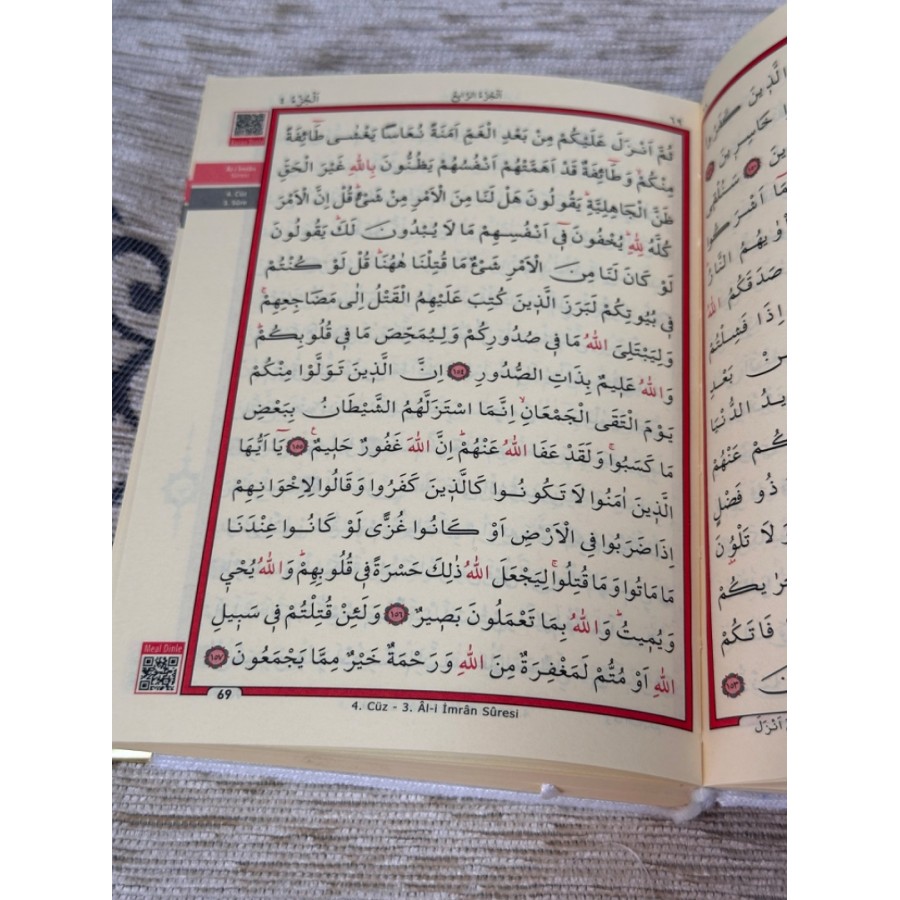 اَلْجُزْءُ ٤
اَلْجُزْءُ الرَّابِعُ
٦٩
ثُمَّ اَنْزَلَ عَلَيْكُمْ مِنْ بَعْدِ الْغَمِّ اَمَنَةً نُعَاسًا يَغْشٰى طَٓائِفَةً
مِنْكُمْۙ وَطَٓائِفَةٌ قَدْ اَهَمَّتْهُمْ اَنْفُسُهُمْ يَظُنُّونَ بِاللّٰهِ غَيْرَ الْحَقِّ
ظَنَّ الْجَاهِلِيَّةِۜ يَقُولُونَ هَلْ لَنَا مِنَ الْاَمْرِ مِنْ شَيْءٍۜ قُلْ اِنَّ الْاَمْرَ
كُلَّهُ لِلّٰهِۜ يُخْفُونَ ف۪ٓي اَنْفُسِهِمْ مَا لَا يُبْدُونَ لَكَۜ يَقُولُونَ
لَوْ كَانَ لَنَا مِنَ الْاَمْرِ شَيْءٌ مَا قُتِلْنَا هٰهُنَاۜ قُلْ لَوْ كُنْتُمْ
ف۪ي بُيُوتِكُمْ لَبَرَزَ الَّذ۪ينَ كُتِبَ عَلَيْهِمُ الْقَتْلُ اِلٰى مَضَاجِعِهِمْۚ
وَلِيَبْتَلِيَ اللّٰهُ مَا ف۪ي صُدُورِكُمْ وَلِيُمَحِّصَ مَا ف۪ي قُلُوبِكُمْۜ
وَاللّٰهُ عَل۪يمٌ بِذَاتِ الصُّدُورِ ١٥٤ اِنَّ الَّذ۪ينَ تَوَلَّوْا مِنْكُمْ
يَوْمَ الْتَقَى الْجَمْعَانِۙ اِنَّمَا اسْتَزَلَّهُمُ الشَّيْطَانُ بِبَعْضِ
مَا كَسَبُواۚ وَلَقَدْ عَفَا اللّٰهُ عَنْهُمْۜ اِنَّ اللّٰهَ غَفُورٌ حَل۪يمٌ۟ ١٥٥ يَٓا اَيُّهَا
الَّذ۪ينَ اٰمَنُوا لَا تَكُونُوا كَالَّذ۪ينَ كَفَرُوا وَقَالُوا لِاِخْوَانِهِمْ
اِذَا ضَرَبُوا فِي الْاَرْضِ اَوْ كَانُوا غُزًّى لَوْ كَانُوا عِنْدَنَا
مَا مَاتُوا وَمَا قُتِلُواۚ لِيَجْعَلَ اللّٰهُ ذٰلِكَ حَسْرَةً ف۪ي قُلُوبِهِمْۜ وَاللّٰهُ يُحْي۪
وَيُم۪يتُۜ وَاللّٰهُ بِمَا تَعْمَلُونَ بَص۪يرٌ ١٥٦ وَلَئِنْ قُتِلْتُمْ ف۪ي سَب۪يلِ
اللّٰهِ اَوْ مُتُّمْ لَمَغْفِرَةٌ مِنَ اللّٰهِ وَرَحْمَةٌ خَيْرٌ مِمَّا يَجْمَعُونَ ١٥٧
4. Cüz
3. Sûre
Meal Dinle
69
4. Cüz - 3. Âl-i İmrân Sûresi
الَّذ۪ينَ كَفَرُوا
خَاسِر۪ينَ
سَنُلْق۪ي
اَشْرَكُوا
النَّارُ
صَدَقَكُمُ اللّٰهُ
اِذَا فَشِلْتُمْ
مِنْ بَعْدِ
الدُّنْيَا
عَنْهُمْ
ذُو فَضْلٍ
وَلَا تَلْوُ۫نَ
فَاتَكُمْ
١٥٣